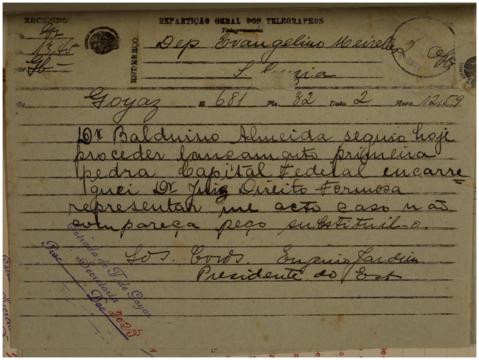 REPARTIÇÃO GERAL DOS TELEGRAPHOS
Telegramma
RECEBIDO
ENDEREÇO
Dep Evangelino Meirelles
S. Luzia
Goyaz N 681 Pls. 32 Data 2 Hora 12.59
Dr Balduino Almeida seguio hoje
proceder lançamento primeira
pedra Capital Federal encarre
guei Dr Juiz Direito Formosa
representar me acto caso não
compareça peço substituil-o.
Sds. Cords. Eugenio Jardim
Presidente do Est
Estado de Goyaz
Secretaria
Doc. 2025